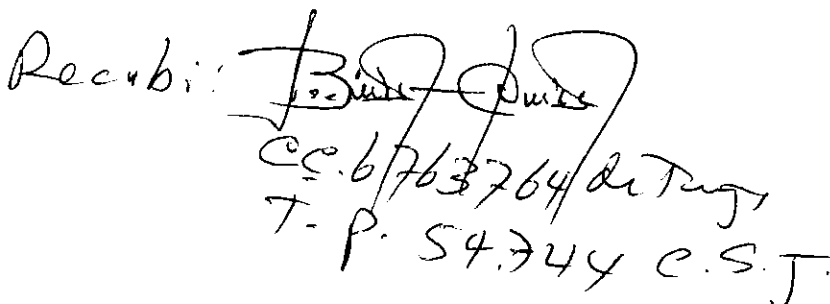 Recibi:
CC. 6763764 de Tunja
T. P. 54.744 C.S.J.